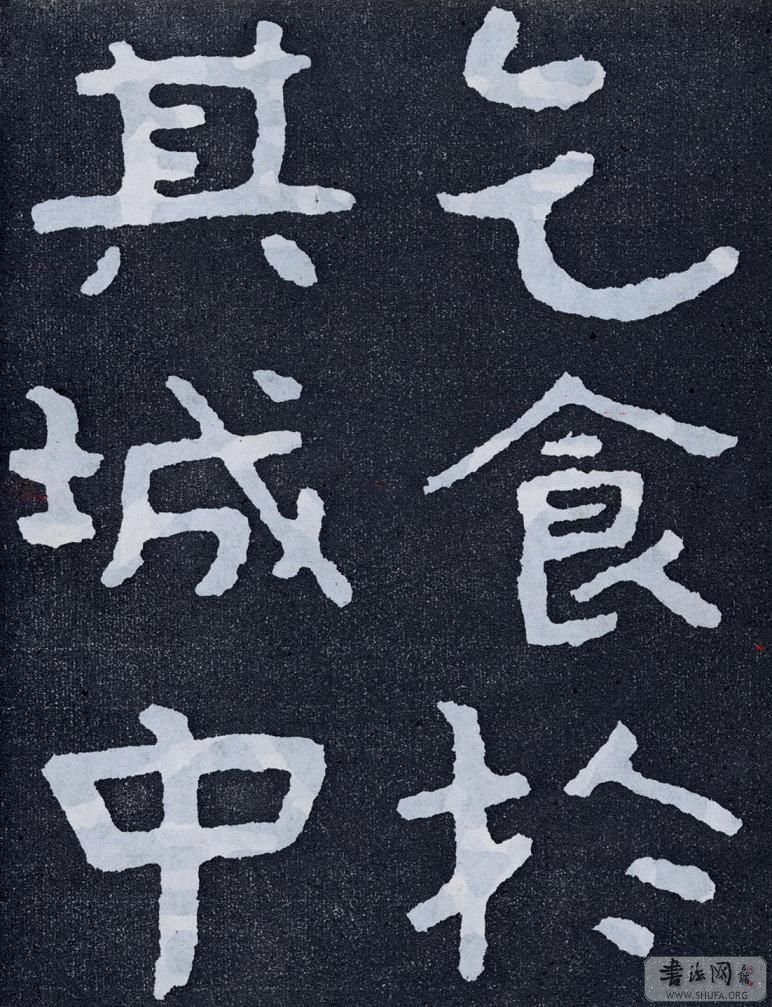 乞食於
其城中
書法网
WWW.SHUFA.ORG